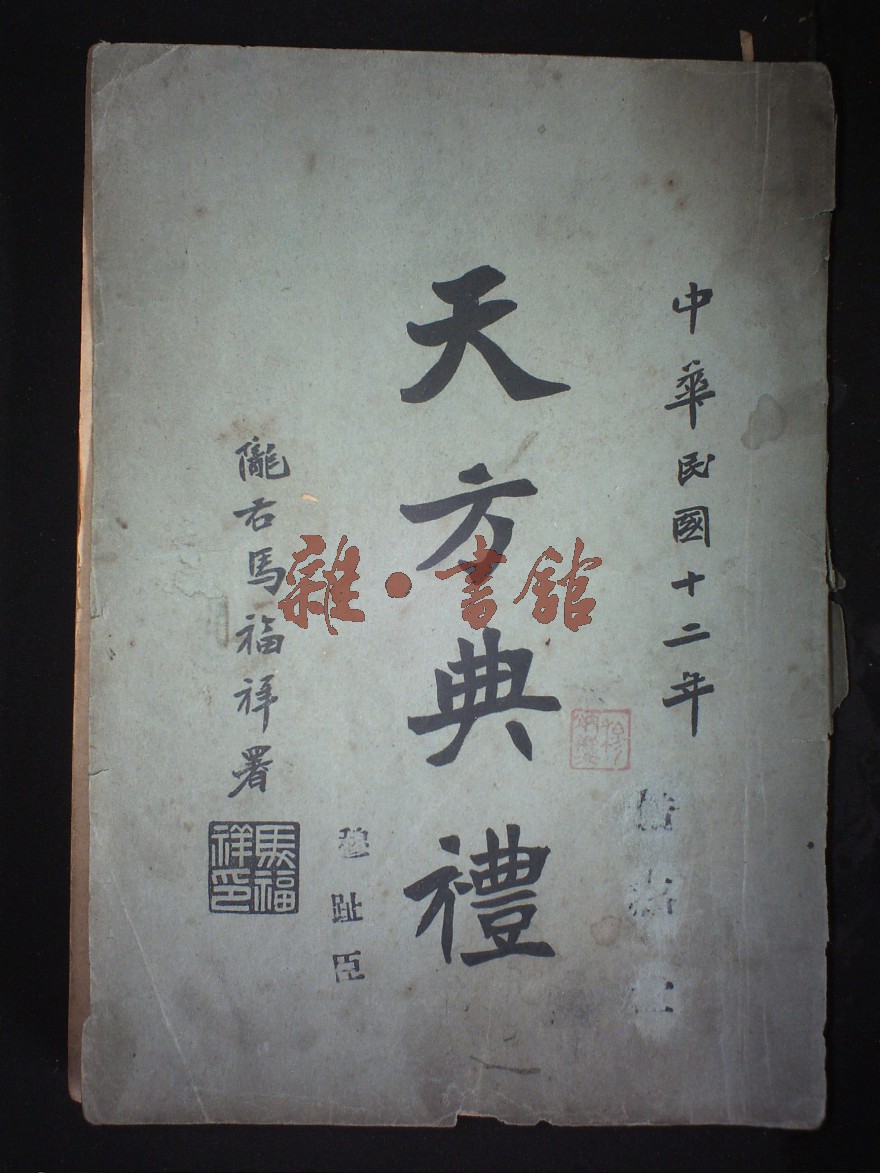 中華民國十二年
天方典禮
隴右馬福祥署
馬福祥印
穆趾臣
雜·書館